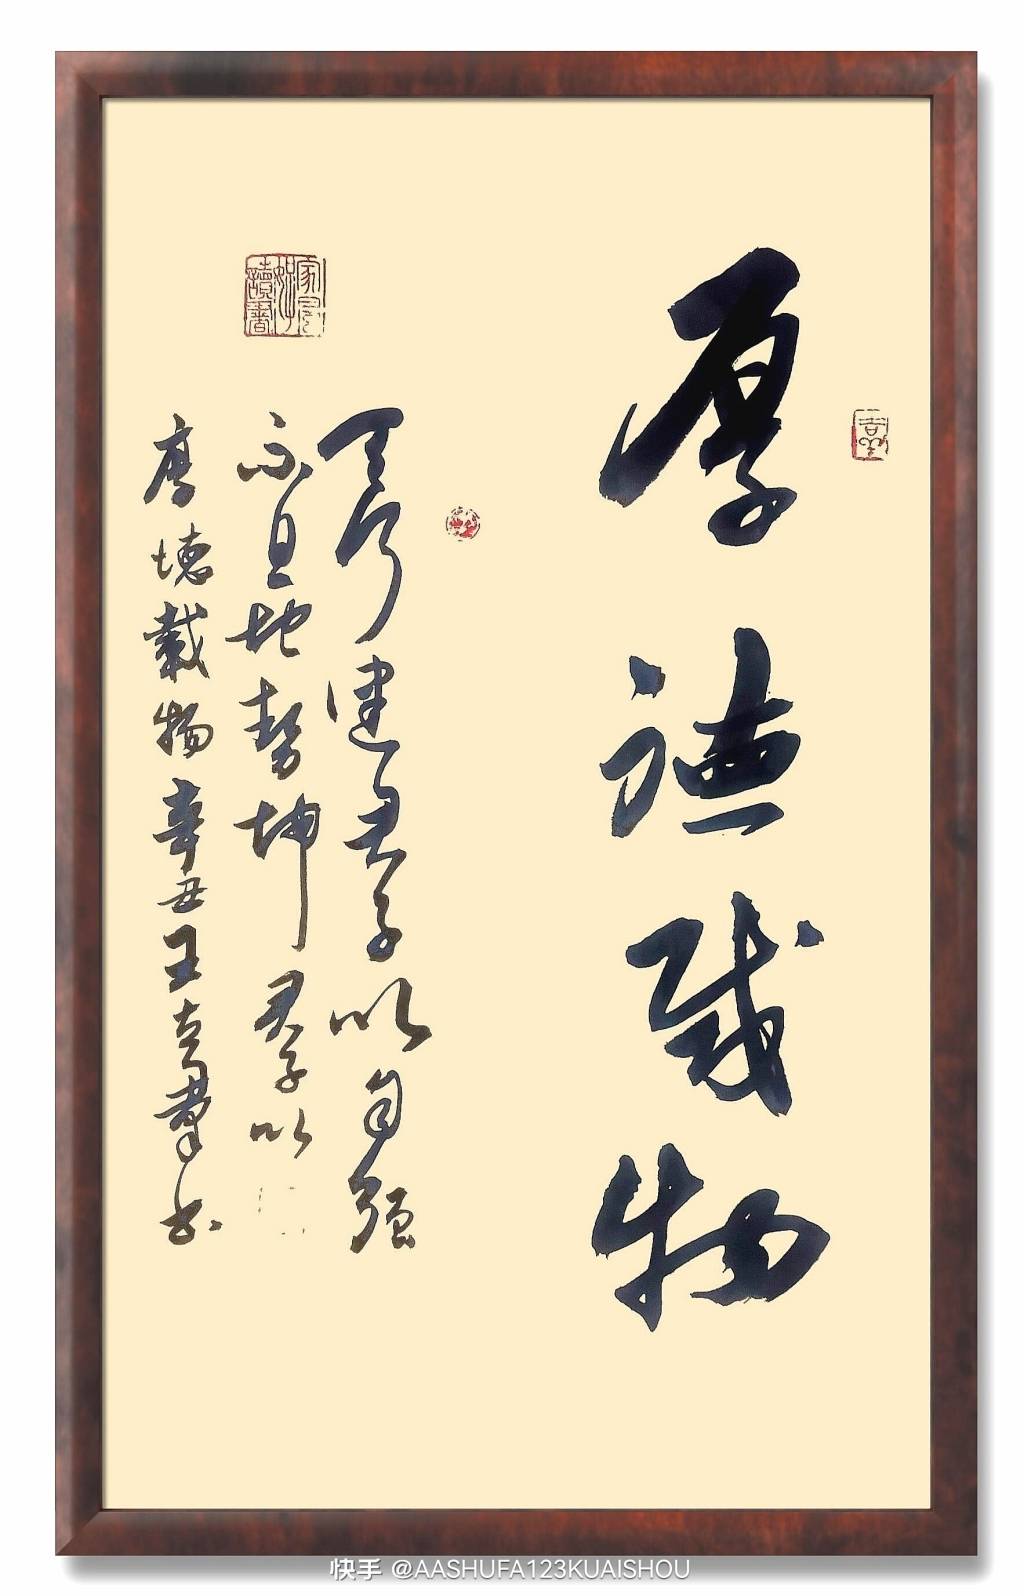 厚德载物
天行健君子以自强
不息地势坤君子以
厚德載物辛丑王书
快手 @AASHUFA123KUAISHOU